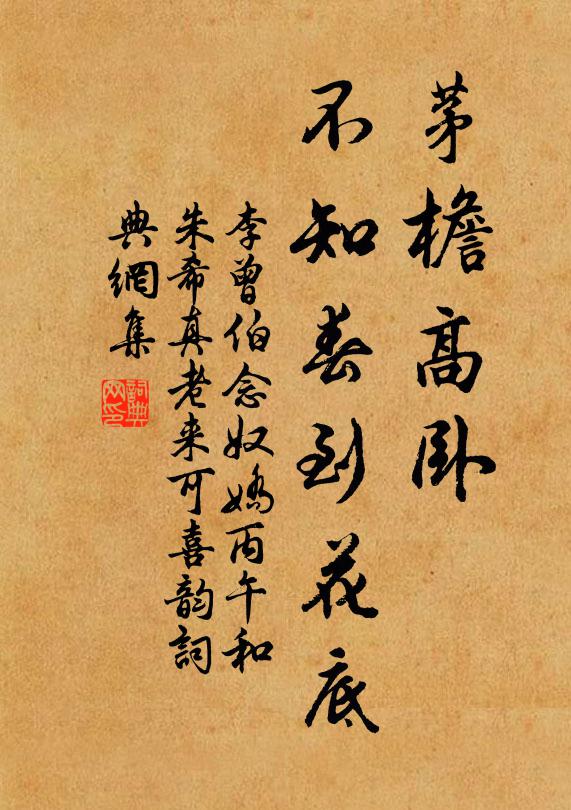 茅檐高卧
不知春到花底
李曾伯念奴嬌丙午和
朱希真老来可喜韵詞
典網集
詞典網印